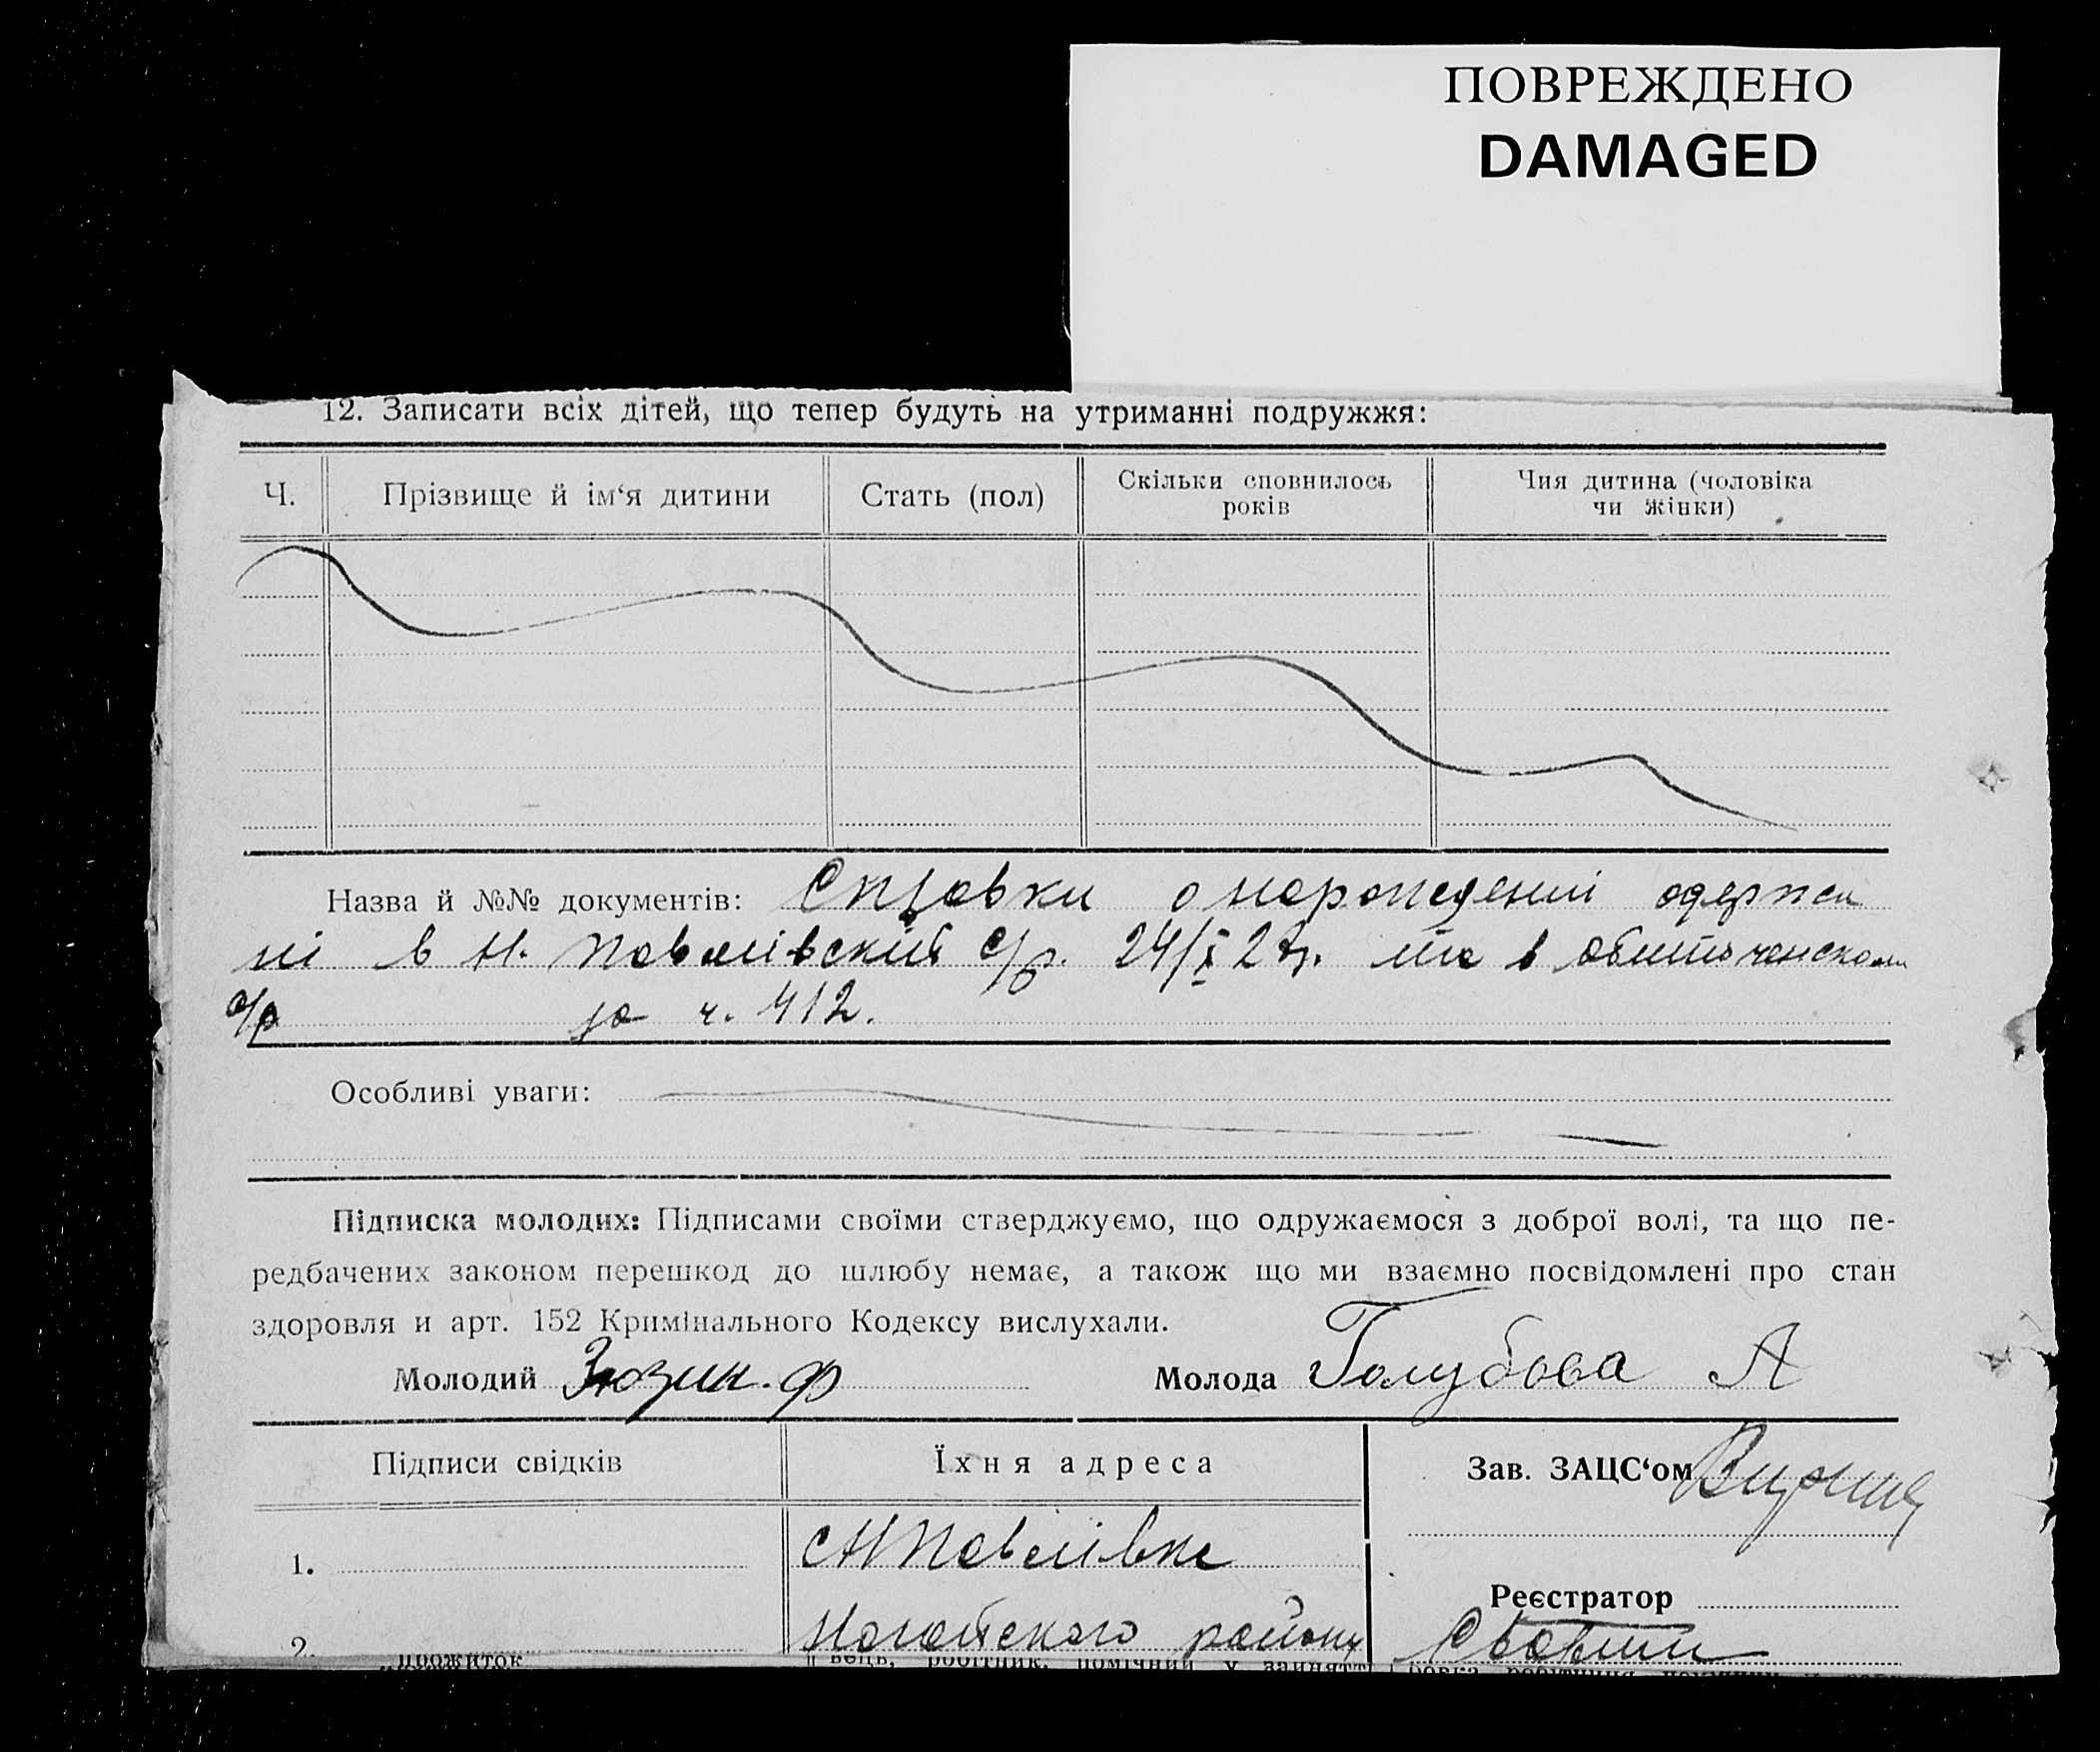 ПОВРЕЖДЕНО
DAMAGED
12. Записати всіх дітей, що тепер будуть на утриманні подружжя:
Ч. Прізвище й ім‘я дитини Стать (пол) Скільки сповнилось років Чия дитина (чоловіка чи жінки)
Назва й №№ документів: Справки о нарождениі одержа
ні в Н. Павлівский с/р. 24/X 27р. та в Обиточенском
с/р за ч. 412.
Особливі уваги:
Підписка молодих: Підписами своїми стверджуємо, що одружаємося з доброї волі, та що пе-
редбачених законом перешкод до шлюбу немає, а також що ми взаємно посвідомлені про стан
здоровля и арт. 152 Кримінального Кодексу вислухали.
Молодий Зюзин. Ф Молода Голубова А
Підписи свідків Їхня адреса Зав. ЗАЦС‘ом
1. с Н Павлівка
Реєстратор
2. Ногайского району
прожиток